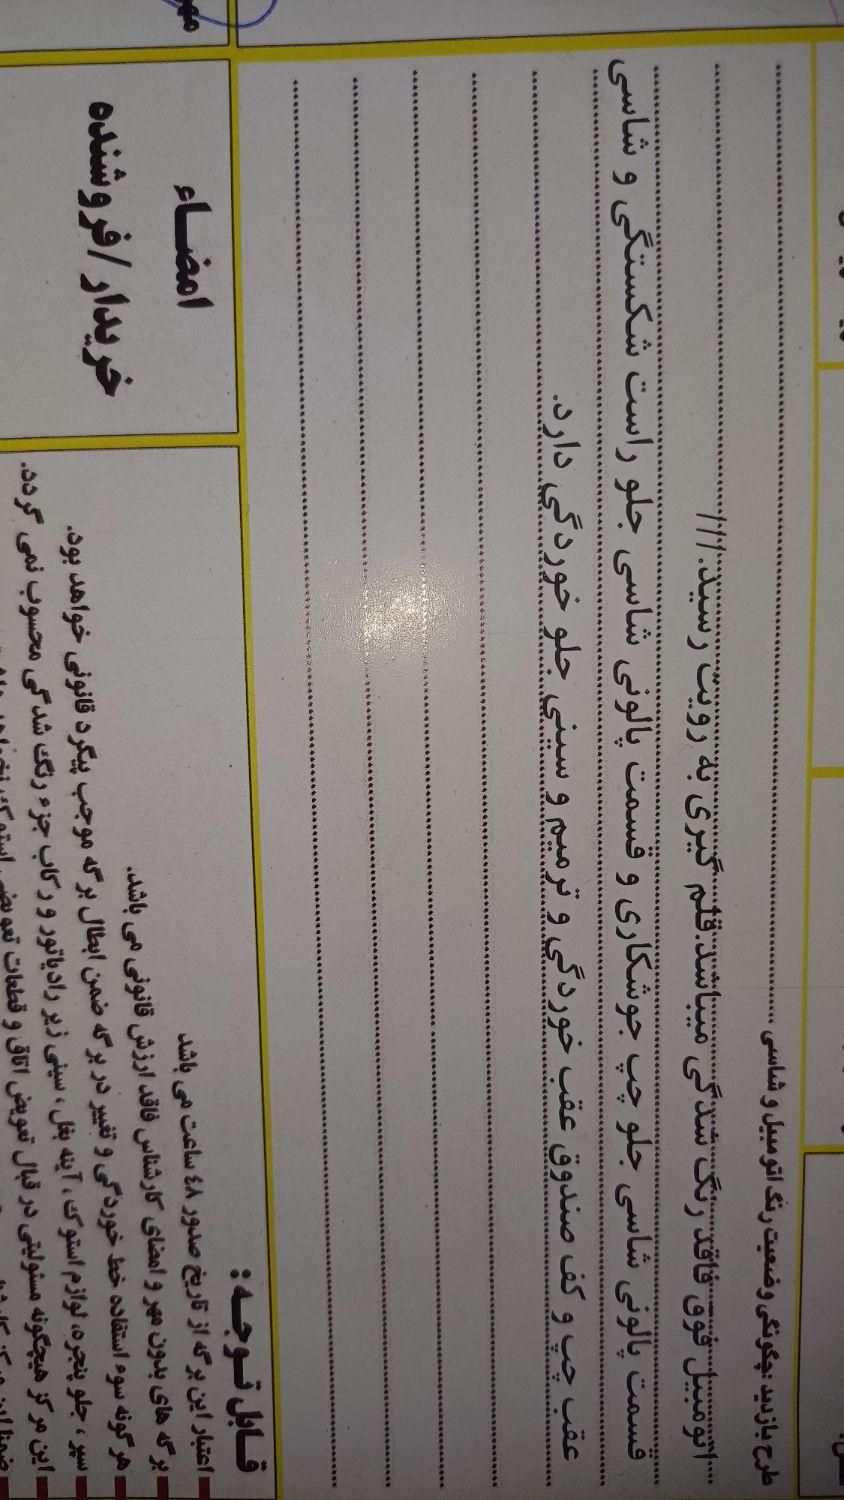 طرح بازدید :چگونگی وضعیت رنگ اتومبیل و شاسی
اتومبیل فوق فاقد رنگ شدگی میباشد.قلم گیری به رویت رسید.///
قسمت پالونی شاسی جلو چپ جوشکاری و قسمت پالونی شاسی جلو راست شکستگی و شاسی
عقب چپ و کف صندوق عقب خوردگی و ترمیم و سینی جلو خوردگی دارد.
قابل توجه :
اعتبار این برگه از تاریخ صدور ٤٨ ساعت می باشد
برگه های بدون مهر و امضای کارشناس فاقد ارزش قانونی می باشد.
هرگونه سوء استفاده خط خوردگی و تغییر در برگه ضمن ابطال برگه موجب پیگرد قانونی خواهد بود.
سپر ، جلو پنجره، لوازم استوک ، آینه بغل ، سینی زیر رادیاتور و رکاب جزء رنگ شدگی محسوب نمی گردد.
این مرکز هیچگونه مسئولیتی در قبال تعویض اتاق و قطعات تعویضی استوک نخواهد داشت
امضاء
خریدار/فروشنده
مهر